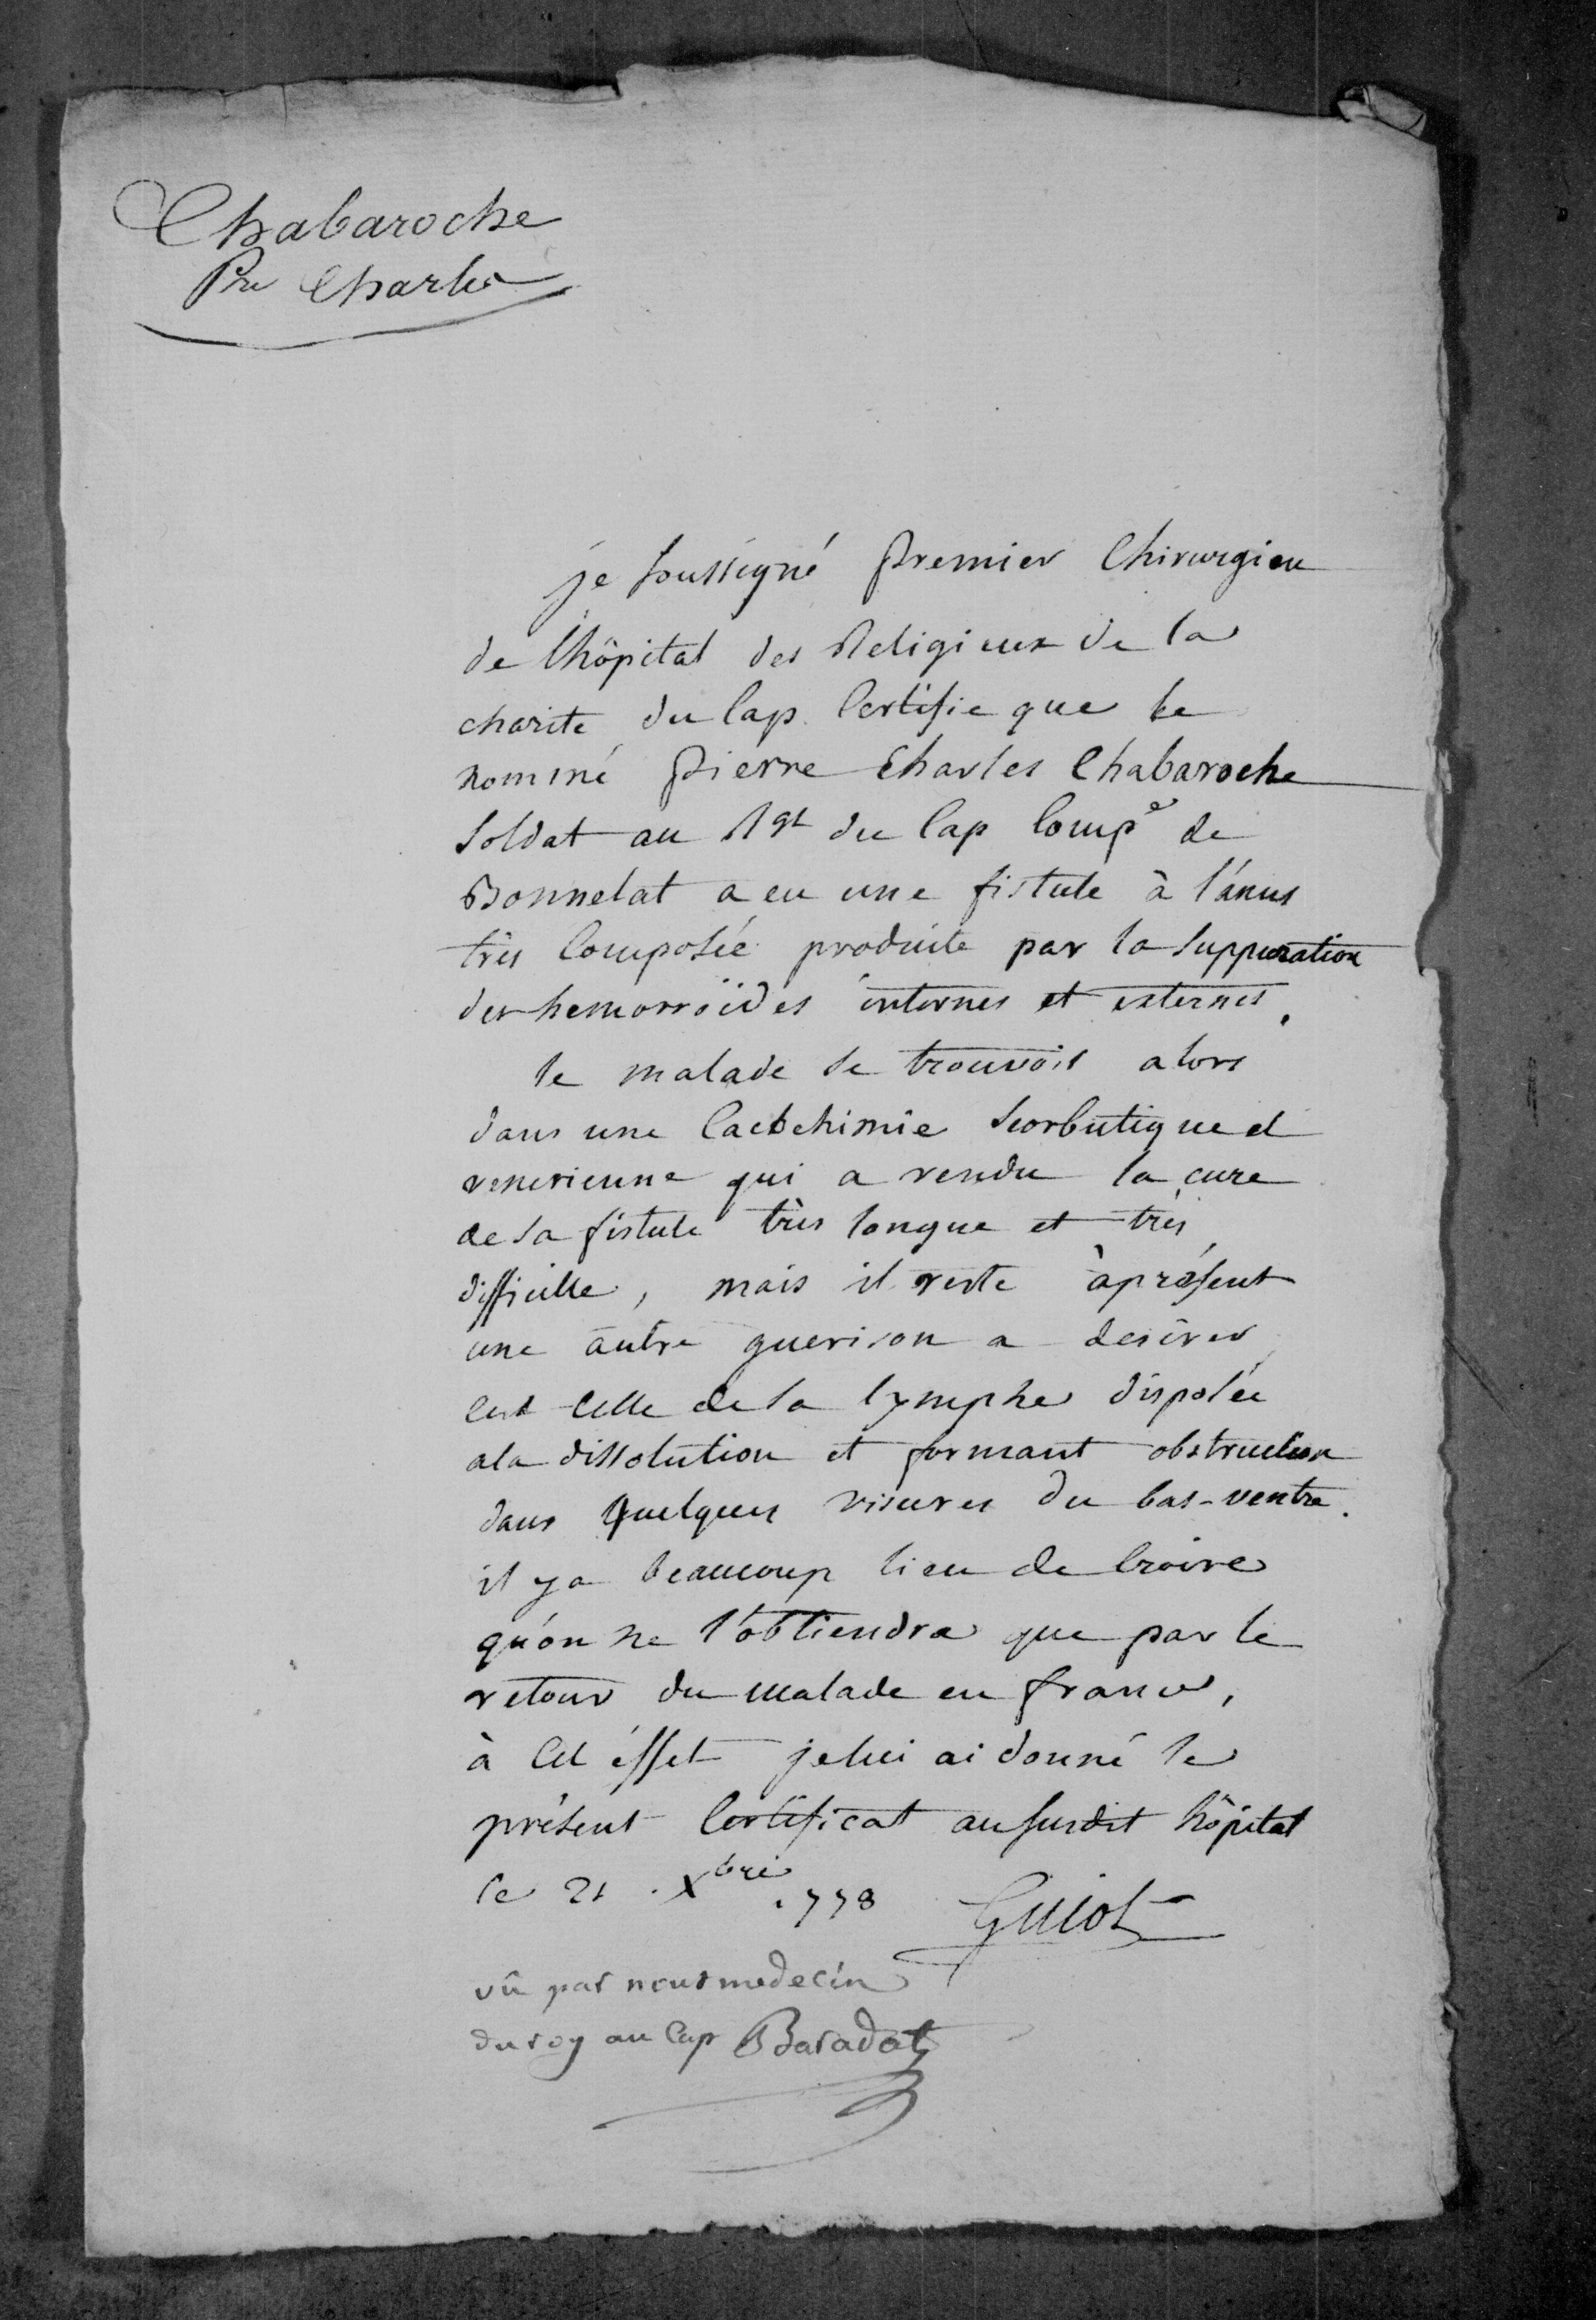 Chabaroche
Pre Charles
je soussigné premier Chirurgien
de l'hôpital des Religieux de la
charite du Cap Certifie que le
nommé pierre Charles Chabaroche
soldat au Rgt du Cap Compe de
Bonnelat a eu une fistule à l'ánus
très Composée produite par la suppuration
des hemorroïdes internes et externes.
le malade se trouvoit alors
dans une Cacochimie scorbutique et
venerienne qui a rendu la cure
de sa fistule très longue et très
difficille, mais il reste àprésent
une autre guerison a desirer
C'est Celle de la lymphe disposée
ala dissolution et formant obstruction
dans quelques visceres du bas-ventre.
il ya beaucoup lieu de Croire
qu'on ne l'obtiendra que par le
retour du malade en france,
à Cet éffet jelui ai donné le
présent Certificat ausurdit hôpital
le 21 . Xbre .778 Guiot
vû par nous medecin
du roy au Cap Baradat